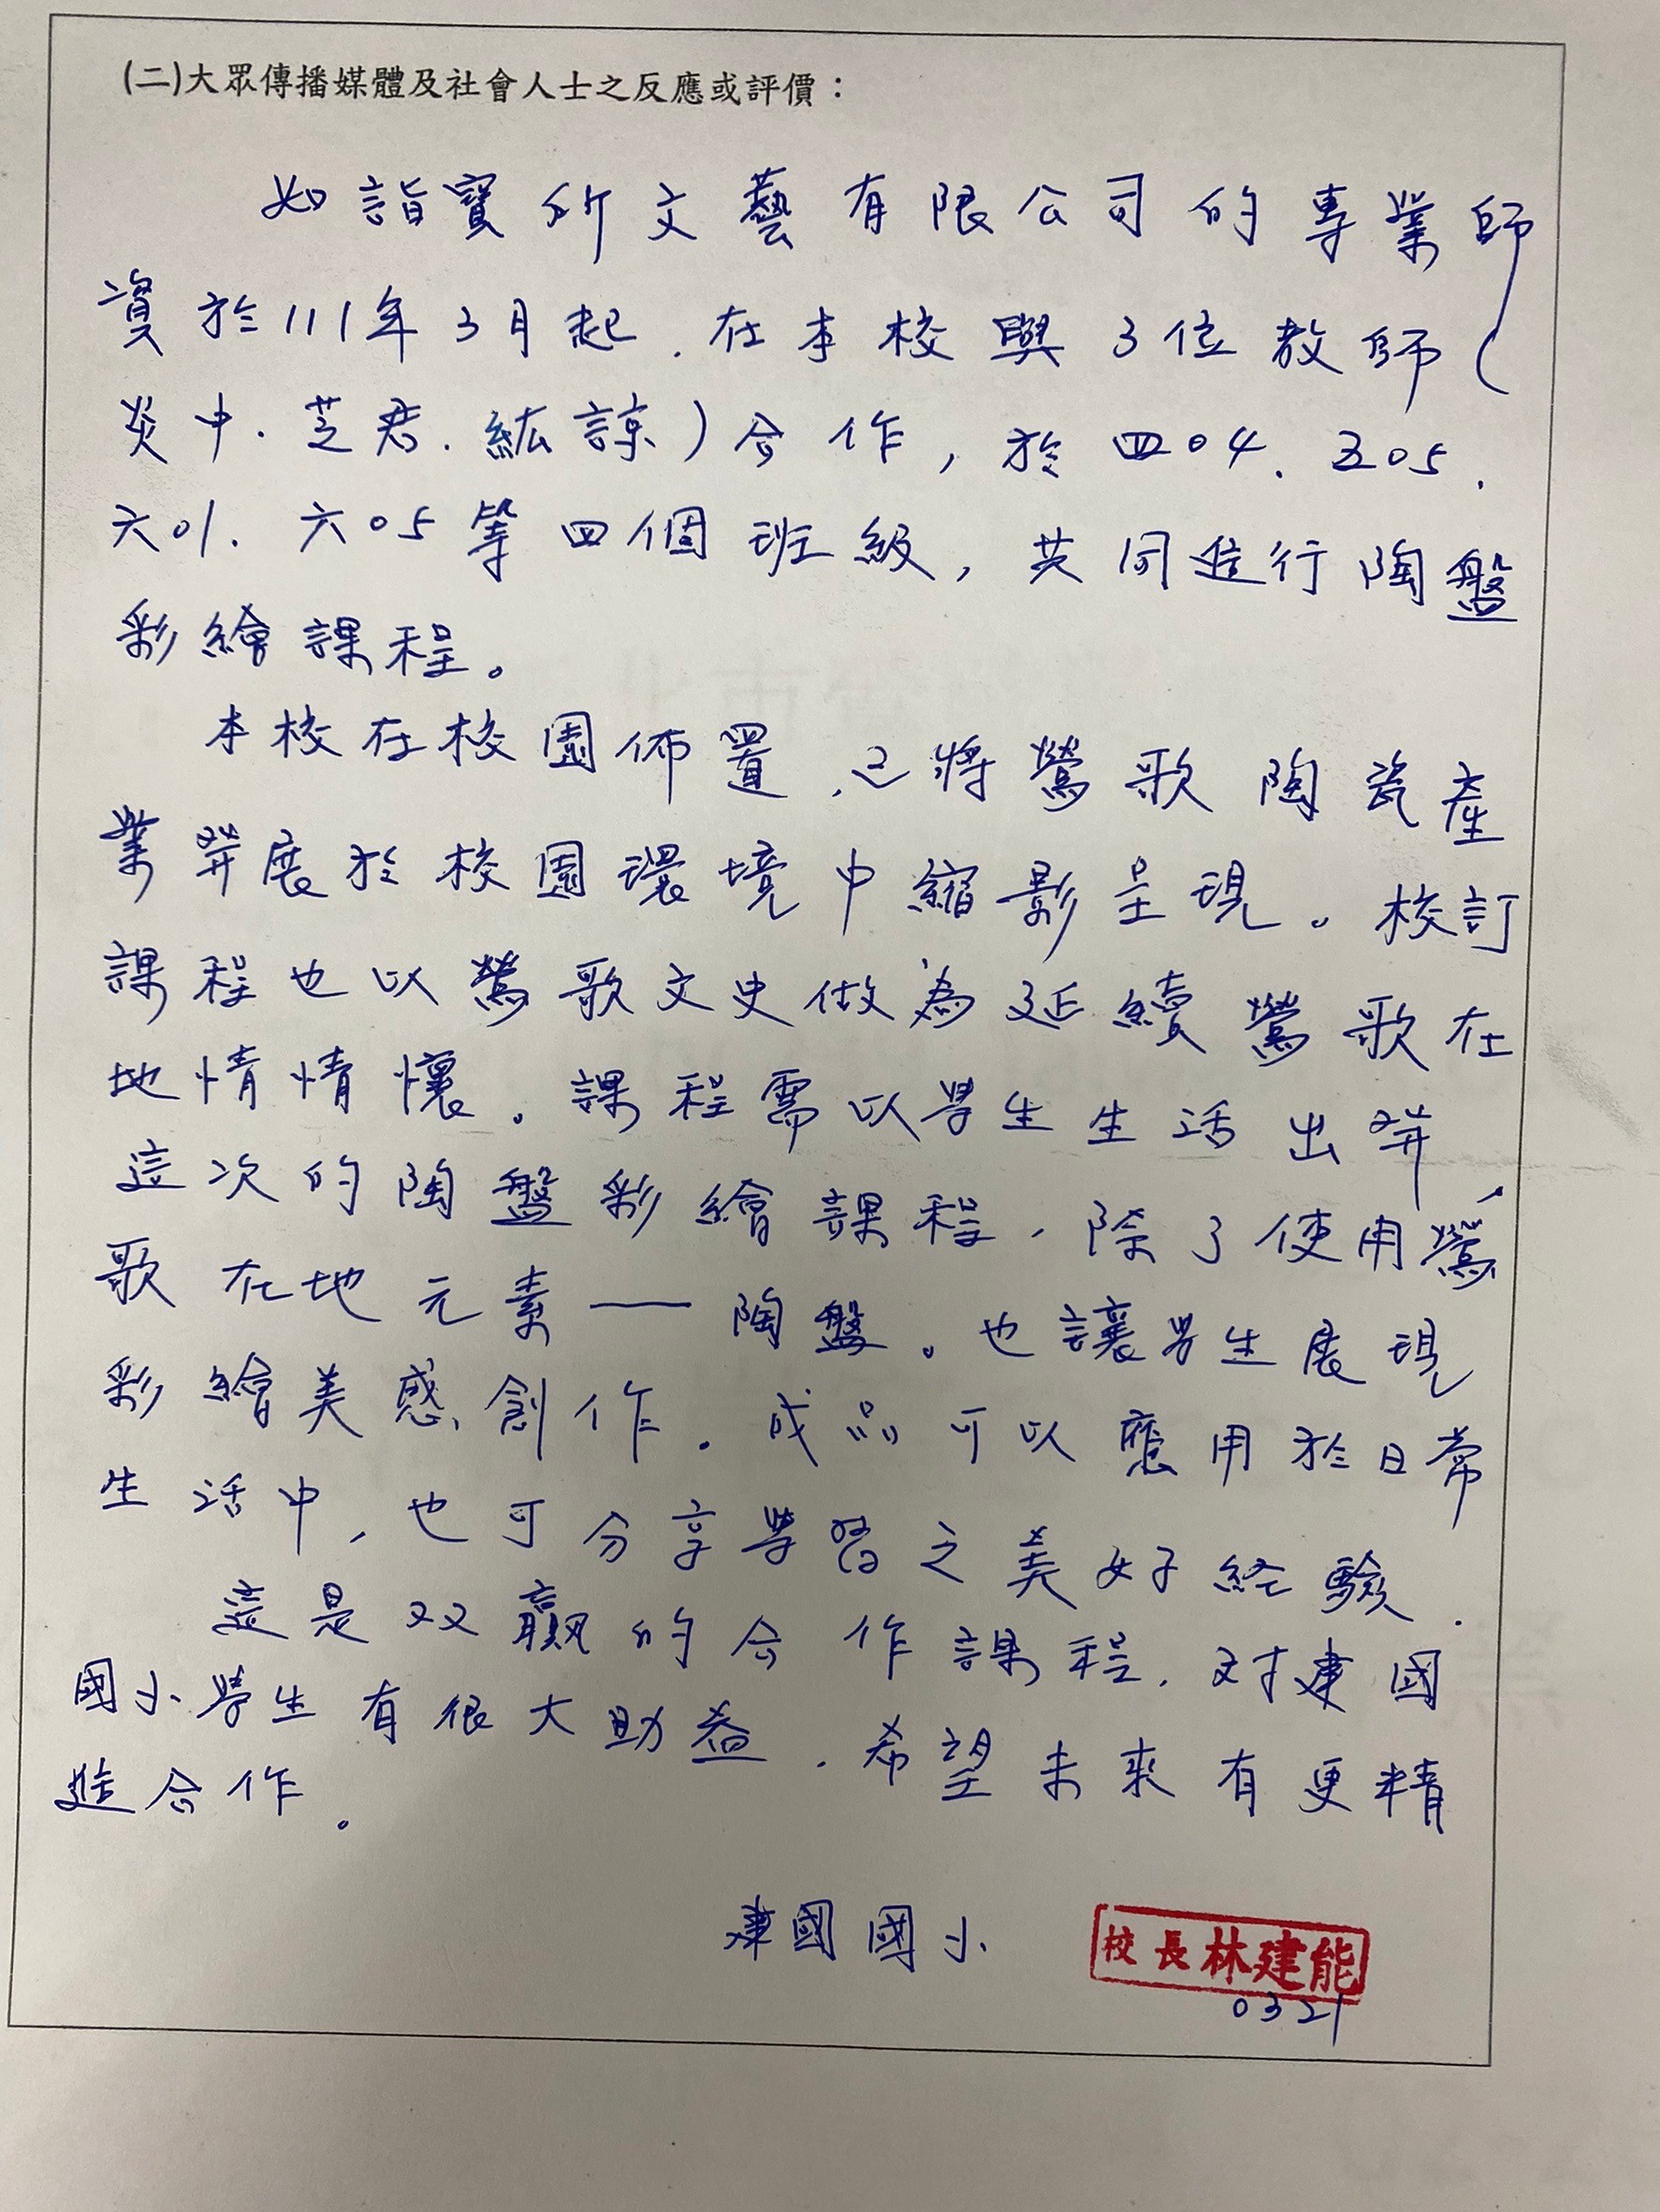 (二)大眾傳播媒體及社會人士之反應或評價：
如詣寶所文藝有限公司的專業師
資於111年3月起，在本校與3位教師(
炎中、芝君、紘諒)合作，於四04、五05、
六01、六05等四個班級，共同進行陶盤
彩繪課程。
本校在校園佈置，已將鶯歌陶瓷產
業發展於校園環境中縮影呈現。校訂
課程也以鶯歌文史做為延續鶯歌在
地情情懷。課程需以學生生活出發，
這次的陶盤彩繪課程，除了使用鶯
歌在地元素——陶盤。也讓學生展現
彩繪美感創作。成品可以應用於日常
生活中，也可分享學習之美好經驗．
這是双贏的合作課程，对建國
國小學生有很大助益．希望未來有更精
進合作。
建國國小
校長林建能
0321